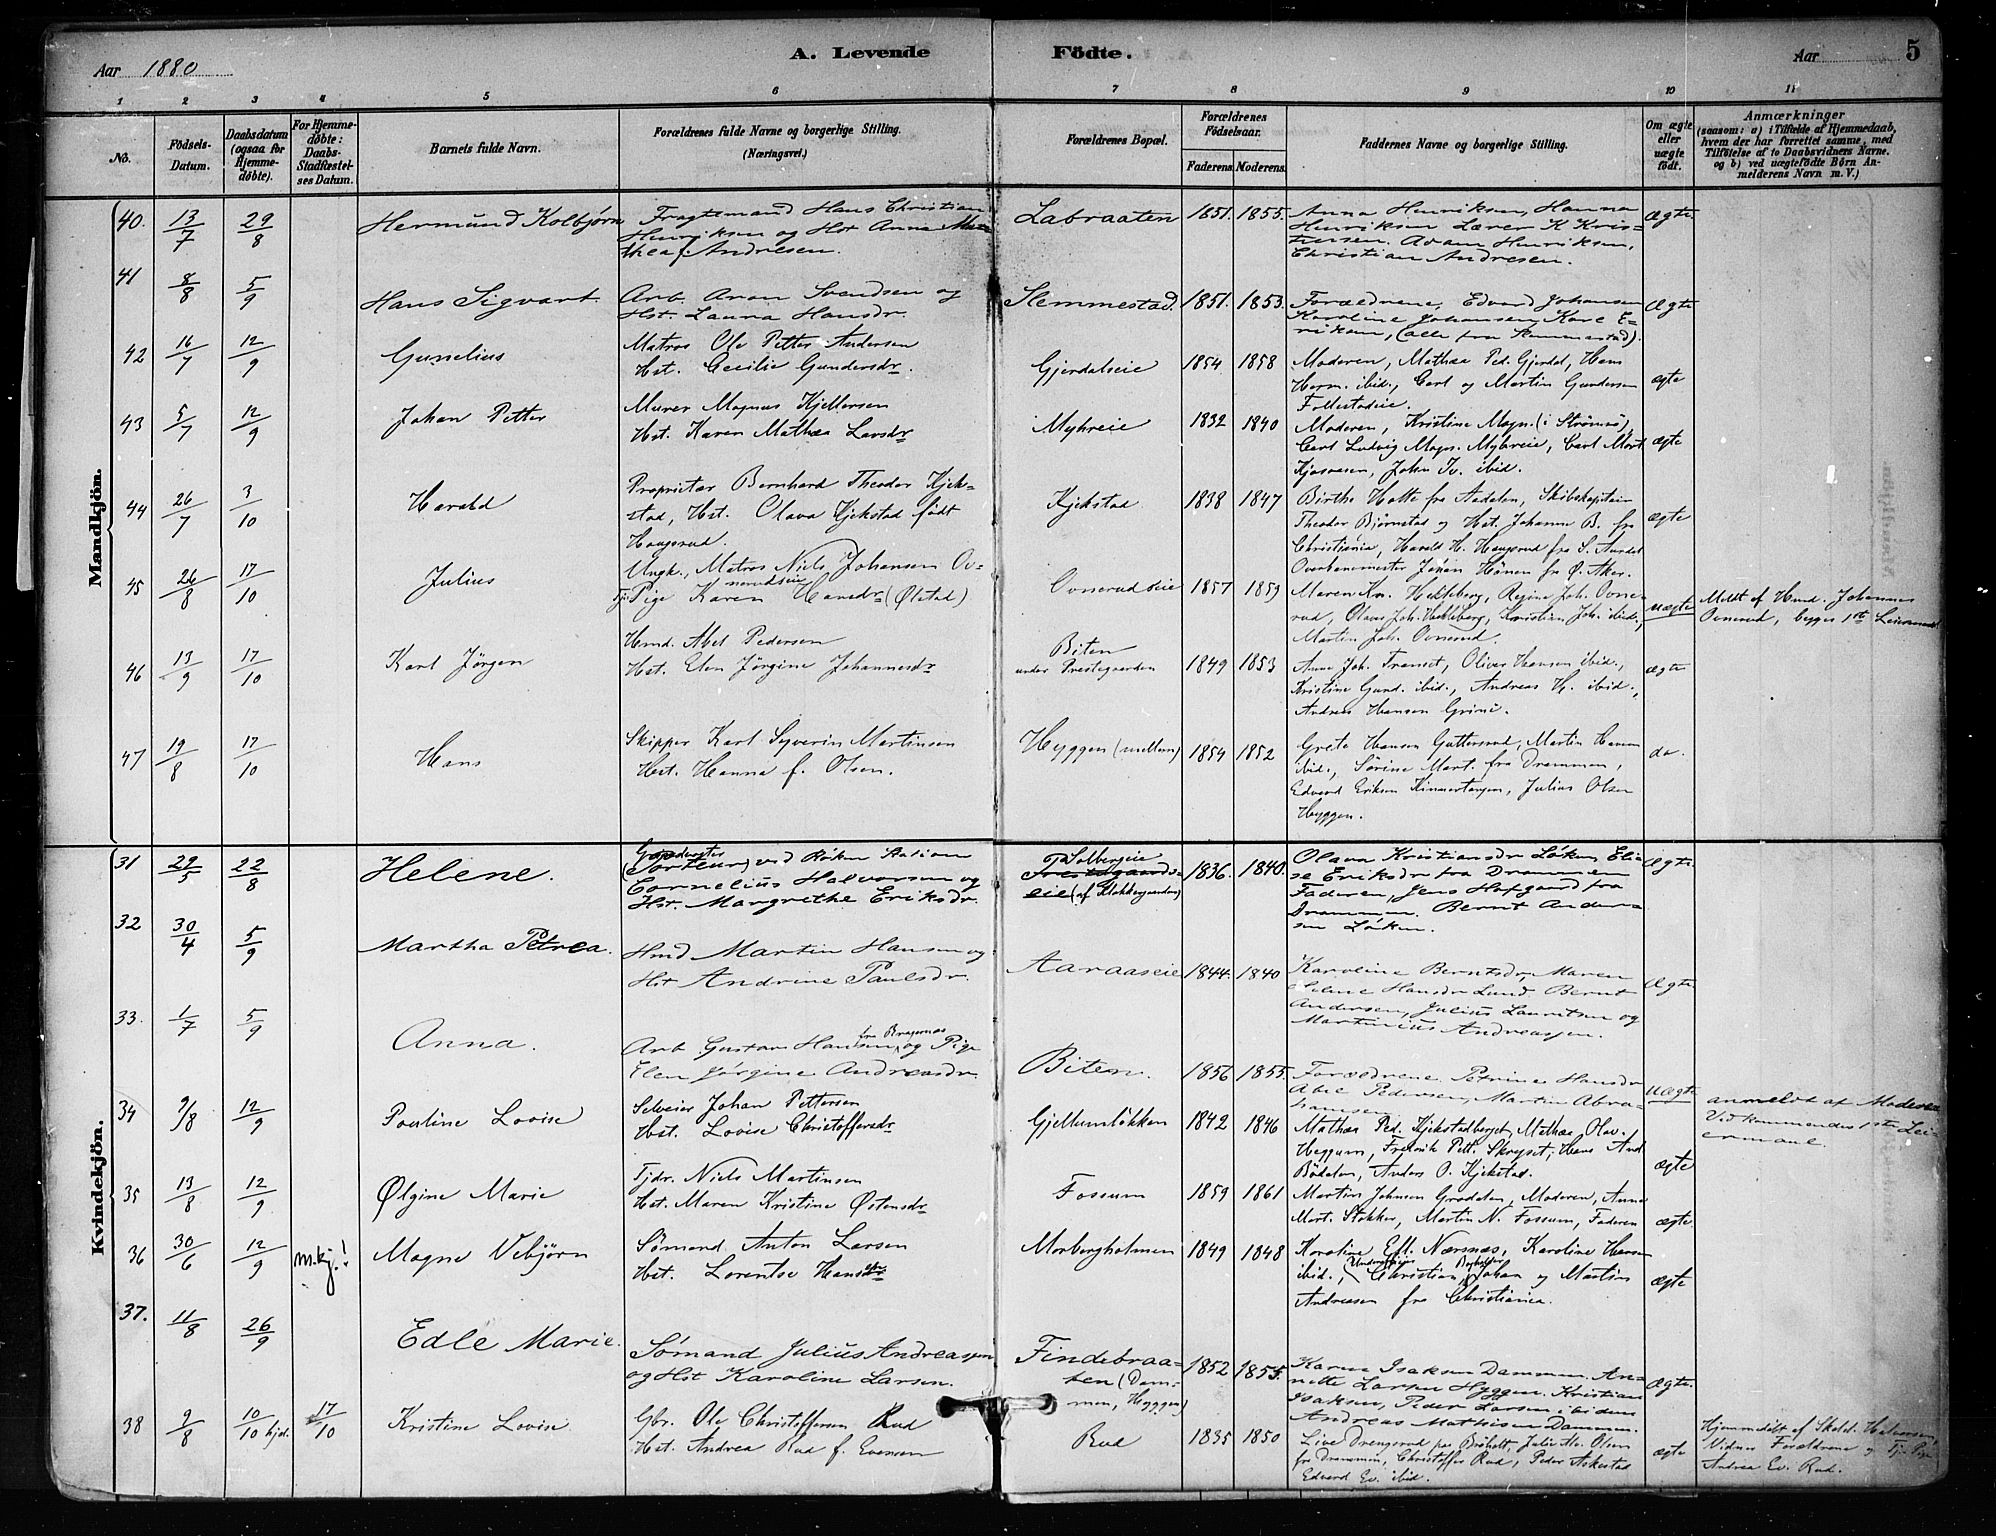 Aar 1880
A. Levende
Födte.
Aar
5
1 2 3 4 5 6 7 8 9 10 11
No.
Födsels-Datum.
Daabsdatum (ogsaa for Hjemme-døbte).
For Hjemme-døbte: Daabs-Stadfæstel-ses Datum.
Barnets fulde Navn.
Forældrenes fulde Navne og borgerlige Stilling. (Næringsvei.)
Forældrenes Bopæl.
Forældrenes Födselsaar.
Faderens. Moderens.
Faddernes Navne og borgerlige Stilling.
Om ægte eller uægte födt.
Anmærkninger
(saasom: a) i Tilfælde af Hjemmedaab, hvem der har forrettet samme, med Tilföielse af to Daabsvidners Navne. og b) ved uægtefödte Börn Anmelderens Navn m. V.)
Mandkjön.
40. 13/7 29/8 Hermund Kolbjørn
Fragtemand Hans Christian
Henriksen og Hst Anna Ma-
thea f. Andresen.
Labraaten 1851. 1855.
Anna Henriksen, Hanna
Henriksen Lærer K Kris-
tiensen. Adam Henriksen,
Christian Andresen.
Ægte
41 8/8 5/9 Hans Sigvart
Arb. Aron Svendsen og
Hst. Laura Hansdr.
Slemmestad. 1851. 1853.
Forældrene, Edvard Johansen
Karoline Johansen, Karl E-
riksen, (alle fra Slemmestad).
Ægte
42 16/7 12/9 Gunelius
Matros Ole Petter Andersen
Hst. Cecilie Gundersdr.
Gjerdalseie 1854 1858
Moderen, Mathea Ped. Gjerdal, Hans
Herm. ibid., Carl og Martin Gundersen
Follestadeie.
ægte
43 5/7 12/9 Johan Petter
Murer Magnus Kjellersen
Hst. Karen Mathea Larsdr
Myhreie 1832 1840
Moderen, Kristine Magn. (i Strømsö),
Carl Ludvig Magn. Myhreie, Carl Mart.
Kjosaasen, John Iv. ibid.
ægte
44 26/7 3/10 Harald
Proprietær Bernhard Theodor Kjek-
stad, Hst. Olava Kjekstad født
Haugerud.
Kjekstad 1838 1847
Birthe Hotte fra Aadalen, Skibskaptein
Theodor Bjørnstad og Hst. Johanne B. fra
Christiania, Harald H. Haugerud fra S. Aurdal
Overbanemester Johan Hönen fra Ø. Aker.
ægte
45 26/8 17/10 Julius
Ungk., Matros Niels Johansen Ov-
nerudseie
Tje. Pige Karen Hansdr (Ølstad)
Ovnerudseie 1857 1859
Maren Kr. Hekleberg, Regine Joh. Ovne-
rud, Olaus Joh. Hekleberg, Kristian Joh. ibid.,
Martin Joh. Ovnerud.
uægte
Meldt af Hmd. Johannes
Ovnerud, begges 1ste Leiermaal
46 13/9 17/10 Karl Jörgen
Hmd. Abel Pedersen
Hst. Elen Jörgine Johannesdr
Biten
under Prestegaarden
1849 1853
Anne Joh. Transet, Oliver Hansen ibid.,
Kristine Gund. ibid., Andreas H. ibid.,
Andreas Hansen Grini.
ægte
47 19/8 17/10 Hans
Skipper Karl Syverin Martinsen
Hst. Hanna f. Olsen.
Hyggen (mellem) 1854 1852
Grete Hansen Guttersrud, Martin Hansen
ibid., Sörine Mart. fra Drammen,
Edvard Eriksen Kinnertangen, Julius Olsen
Hyggen.
do.
Kvindekjön.
31 29/5 22/8 Helene.
(Porteur) ved Røken Station
Cornelius Halvorsen og
Hst. Margrethe Eriksdr.
Solbergeie
Prestegaards-
eie (af Klokkergaarden)
1836. 1840.
Olava Kristiansdr Løken, Eli-
se Eriksdr fra Drammen
Faderen, Jens Hofgaard fra
Drammen. Bernt Ander-
sen Løken.
Ægte
32 30/4 5/9 Martha Petrea.
Hmd Martin Hansen og
Hst Andrine Paulsdr.
Aaraaseie 1844. 1840
Karoline Berntsdr, Maren
Helene Hansdr Lund. Bernt
Andersen, Julius Lauritsen og
Martinius Andreassen.
Ægte
33. 1/7 5/9 Anna.
fra Bragernæs
Arb. Gustav Hansen, og Pige
Elen Jørgine Andreasdr.
Biten. 1856 1855.
Forældrene. Petrine Hansdr
Abel Pedersen, Martin Abra-
hamsen
Uægte
anmeldt af Moderen
Vedkommendes 1ste Lei-
ermaal
34 9/8 12/9 Pauline Lovise
Selveier Johan Pettersen
Hst. Lovise Christoffersdr
Gjellumløkken 1842 1846
Mathea Ped. Kjekstadberget, Mathea Olav.
Heggum, Fredrik Pett. Skryset, Hans And.
Bödalen, Anders O. Kjekstad.
ægte
35 13/8 12/9 Ølgine Marie
Tjdr. Niels Martinsen
Hst. Maren Kristine Østensdr
Fossum 1859 1861
Martin Johnsen Grødalen, Moderen, Anna
Mart. Stokker, Martin N. Fossum, Faderen
ægte.
36 30/6 12/9 m.kj.! Magne Vebjörn
Sömand Anton Larsen
Hst. Lorentse Hansdr
Morbergholmen 1849 1848
Karoline Eft. Nærsnæs, Karoline Hansen
ibid., Christian, Johan og Martin
Andreasen fra Christiania.
ægte
37. 11/8 26/9 Edle Marie.
Sømand Julius Andreassen
og Hst Karoline Larsen.
Findebraa-
ten (Dam-
men, Hyggen)
1852 1855.
Karen Isaksen Dammen. An-
nette Larsen Hyggen. Kristian
Isaksen, Peder Larsen ibidem
Andreas Mathisen Dammen.
Ægte.
38 9/8 10/10 hjd. 17/10 Kristine Lovise
Gbr. Ole Christoffersen Rud
Hst. Andrea Rud f. Evensen
Rud 1835 1850
Live Drengsrud fra Bröholt, Julie Ma. Olsen
fra Drammen, Christoffer Rud, Peder Askestad
Edvard Ev. ibid.
ægte
Hjemmedöbt af Skold. Halvorsen,
Vidner Forældrene og Tje. Pige
Andrea Ev. Rud.